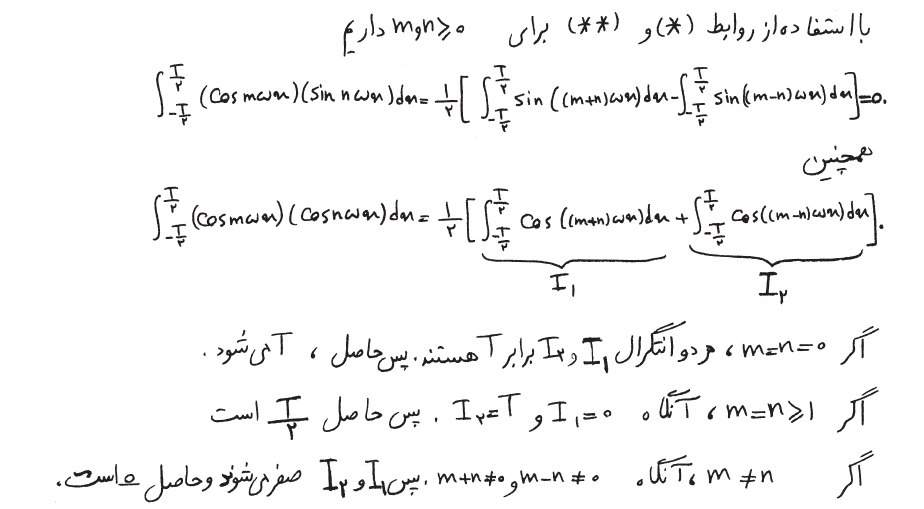 با استفاده از روابط (*) و (**) برای m,n≥۰ داریم
∫_{-T/۲}^{T/۲} (cos mωx)(sin nωx)dx = ۱/۲ [ ∫_{-T/۲}^{T/۲} sin((m+n)ωx)dx - ∫_{-T/۲}^{T/۲} sin((m-n)ωx)dx ] = ۰.
همچنین
∫_{-T/۲}^{T/۲} (cos mωx)(cos nωx)dx = ۱/۲ [ ∫_{-T/۲}^{T/۲} cos((m+n)ωx)dx + ∫_{-T/۲}^{T/۲} cos((m-n)ωx)dx ].
I₁ I₂
اگر m=n=۰، هر دو انتگرال I₁ و I₂ برابر T هستند. پس حاصل، T می‌شود.
اگر m=n≥۱، آنگاه I₁=۰ و I₂=T. پس حاصل T/۲ است
اگر m≠n، آنگاه m-n≠۰ و m+n≠۰. پس I₁ و I₂ صفر می‌شوند و حاصل ۰ است.